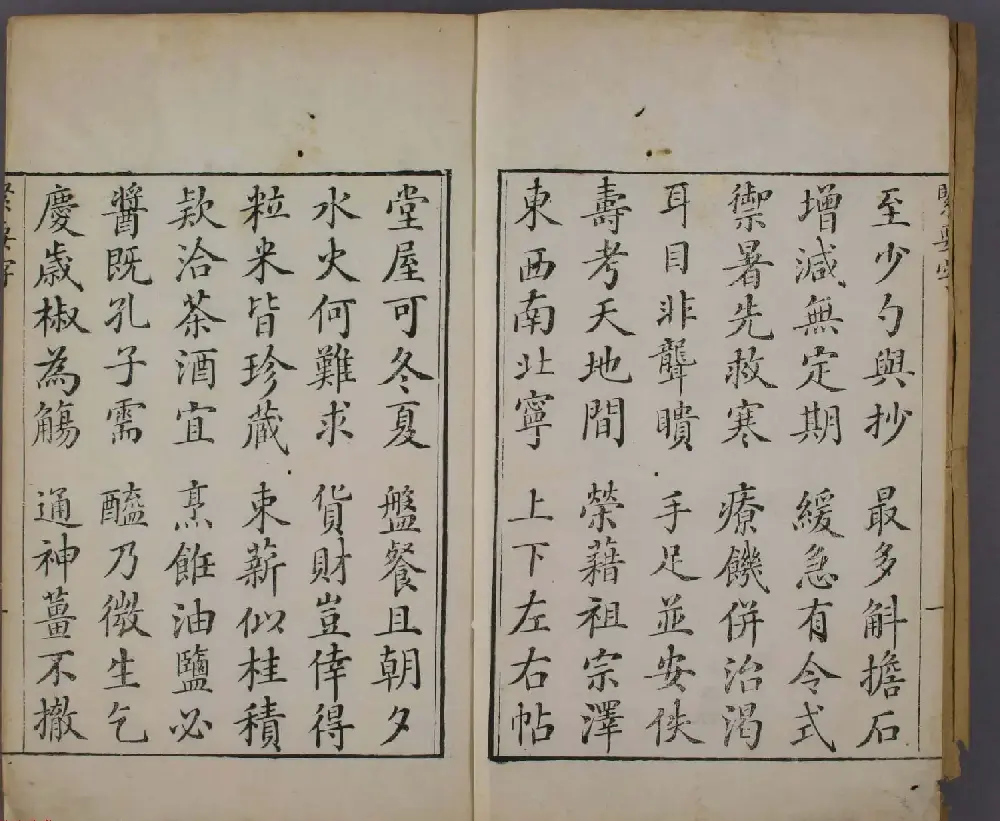 緊要字
至少勺與抄　最多斛擔石
增減無定期　緩急有令式
禦暑先救寒　療饑併治渴
耳目非聾聵　手足並安佚
壽考天地間　榮藉祖宗澤
東西南北寧　上下左右帖
一
堂屋可冬夏　盤餐且朝夕
水火何難求　貨財豈倖得
粒米皆珍藏　束薪似桂積
款洽茶酒宜　烹飪油鹽必
醬既孔子需　醯乃微生乞
慶歲椒為觴　通神薑不撤
緊要字